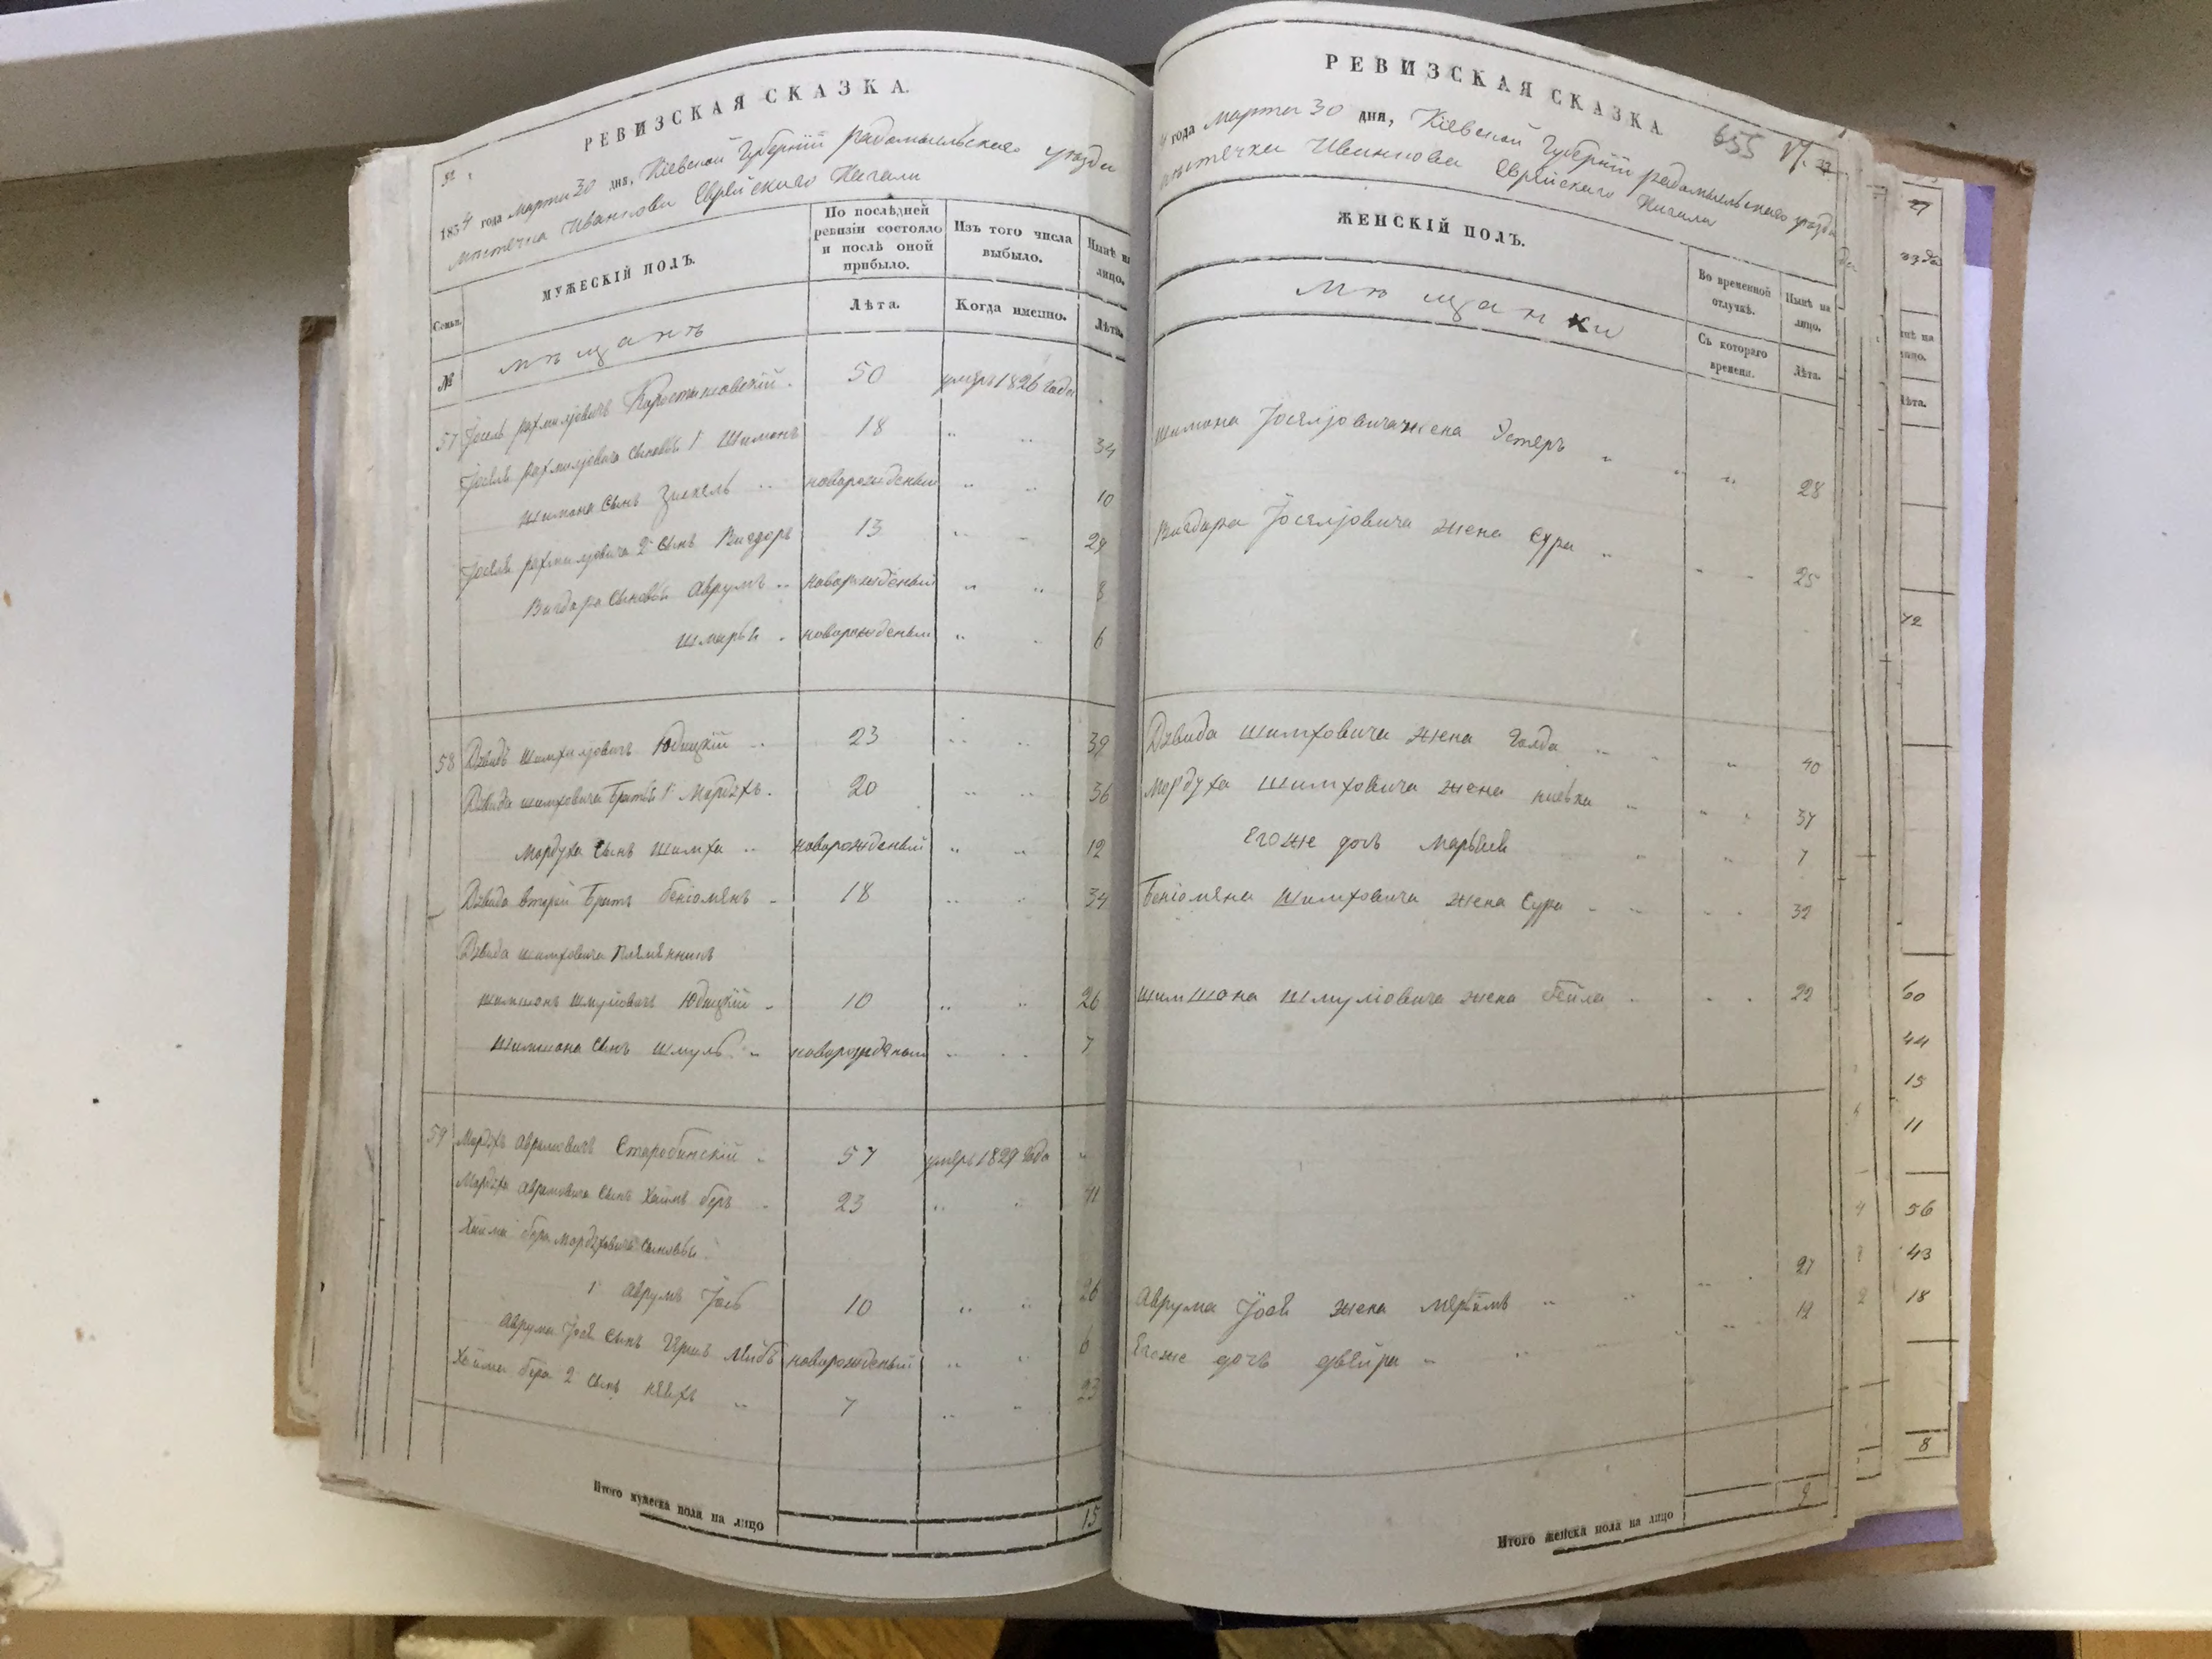 РЕВИЗСКАЯ СКАЗКА.
1834 года марта 30 дня, Кіевской Губерніи радомысльскаго уезда
мѣстечка Иванкова Еврейскаго Кагала
Семьи.
МУЖЕСКІЙ ПОЛЪ.
По послѣдней ревизіи состояло и послѣ оной прибыло.
Изъ того числа выбыло.
Нынѣ на лицо.
№
мѣщанъ
Лѣта.
Когда именно.
Лѣта.
57 Іосель рахмиліовичъ Коростишовскій 50 умеръ 1826 года
Іоселя рахмиліовича сыновья 1й Шимонъ 18 34
Шимона сынъ Зискель новорожденый 10
Іоселя рахмиліовича 2й сынъ Вигдоръ 13 29
Вигдора сыновья Аврумъ новорожденый 8
Шмарья новорожденый 6
58 Давидъ Шимхиліовичъ Юдицкій 23 39
Давида шимховича братья 1й Мордухъ 20 36
Мордуха сынъ шимха новорожденый 12
Давида вторый братъ беніоменъ 18 34
Давида шимховича племенникъ
шимшонъ шмуліовичъ Юдицкій 10 26
Шимшона сынъ шмуль новорожденый 7
59 Мордухъ аврумовичъ Старобинскій 57 умеръ 1829 года
Мордуха аврумовича сынъ Хаимъ беръ 23 41
Хаима бера мордуховича сыновья
1й аврумъ Іось 10 26
аврума Іося сынъ Гершъ лейбъ новорожденый 6
Хаима бера 2й сынъ 7 23
Итого мужеска пола на лицо 15
РЕВИЗСКАЯ СКАЗКА.
655
года марта 30 дня, Кіевской Губерніи радомысльскаго уезда
мѣстечка Иванкова Еврейскаго Кагала
ЖЕНСКІЙ ПОЛЪ.
Во временной отлучкѣ.
Нынѣ на лицо.
мѣщанки
Съ котораго времени.
Лѣта.
шимона Іоселіовича жена Эстеръ 28
Вигдора Іоселіовича жена Сура 25
Давида шимховича жена Голда 40
Мордуха шимховича жена 37
Егоже дочь Марьяся 7
Беніомена Шимховича жена Сура 32
шимшона шмуліовича жена бейла 22
27
Аврума Іося жена
12
Егоже дочь двейра
Итого женска пола на лицо 9
27
72
60
44
15
11
56
43
18
8